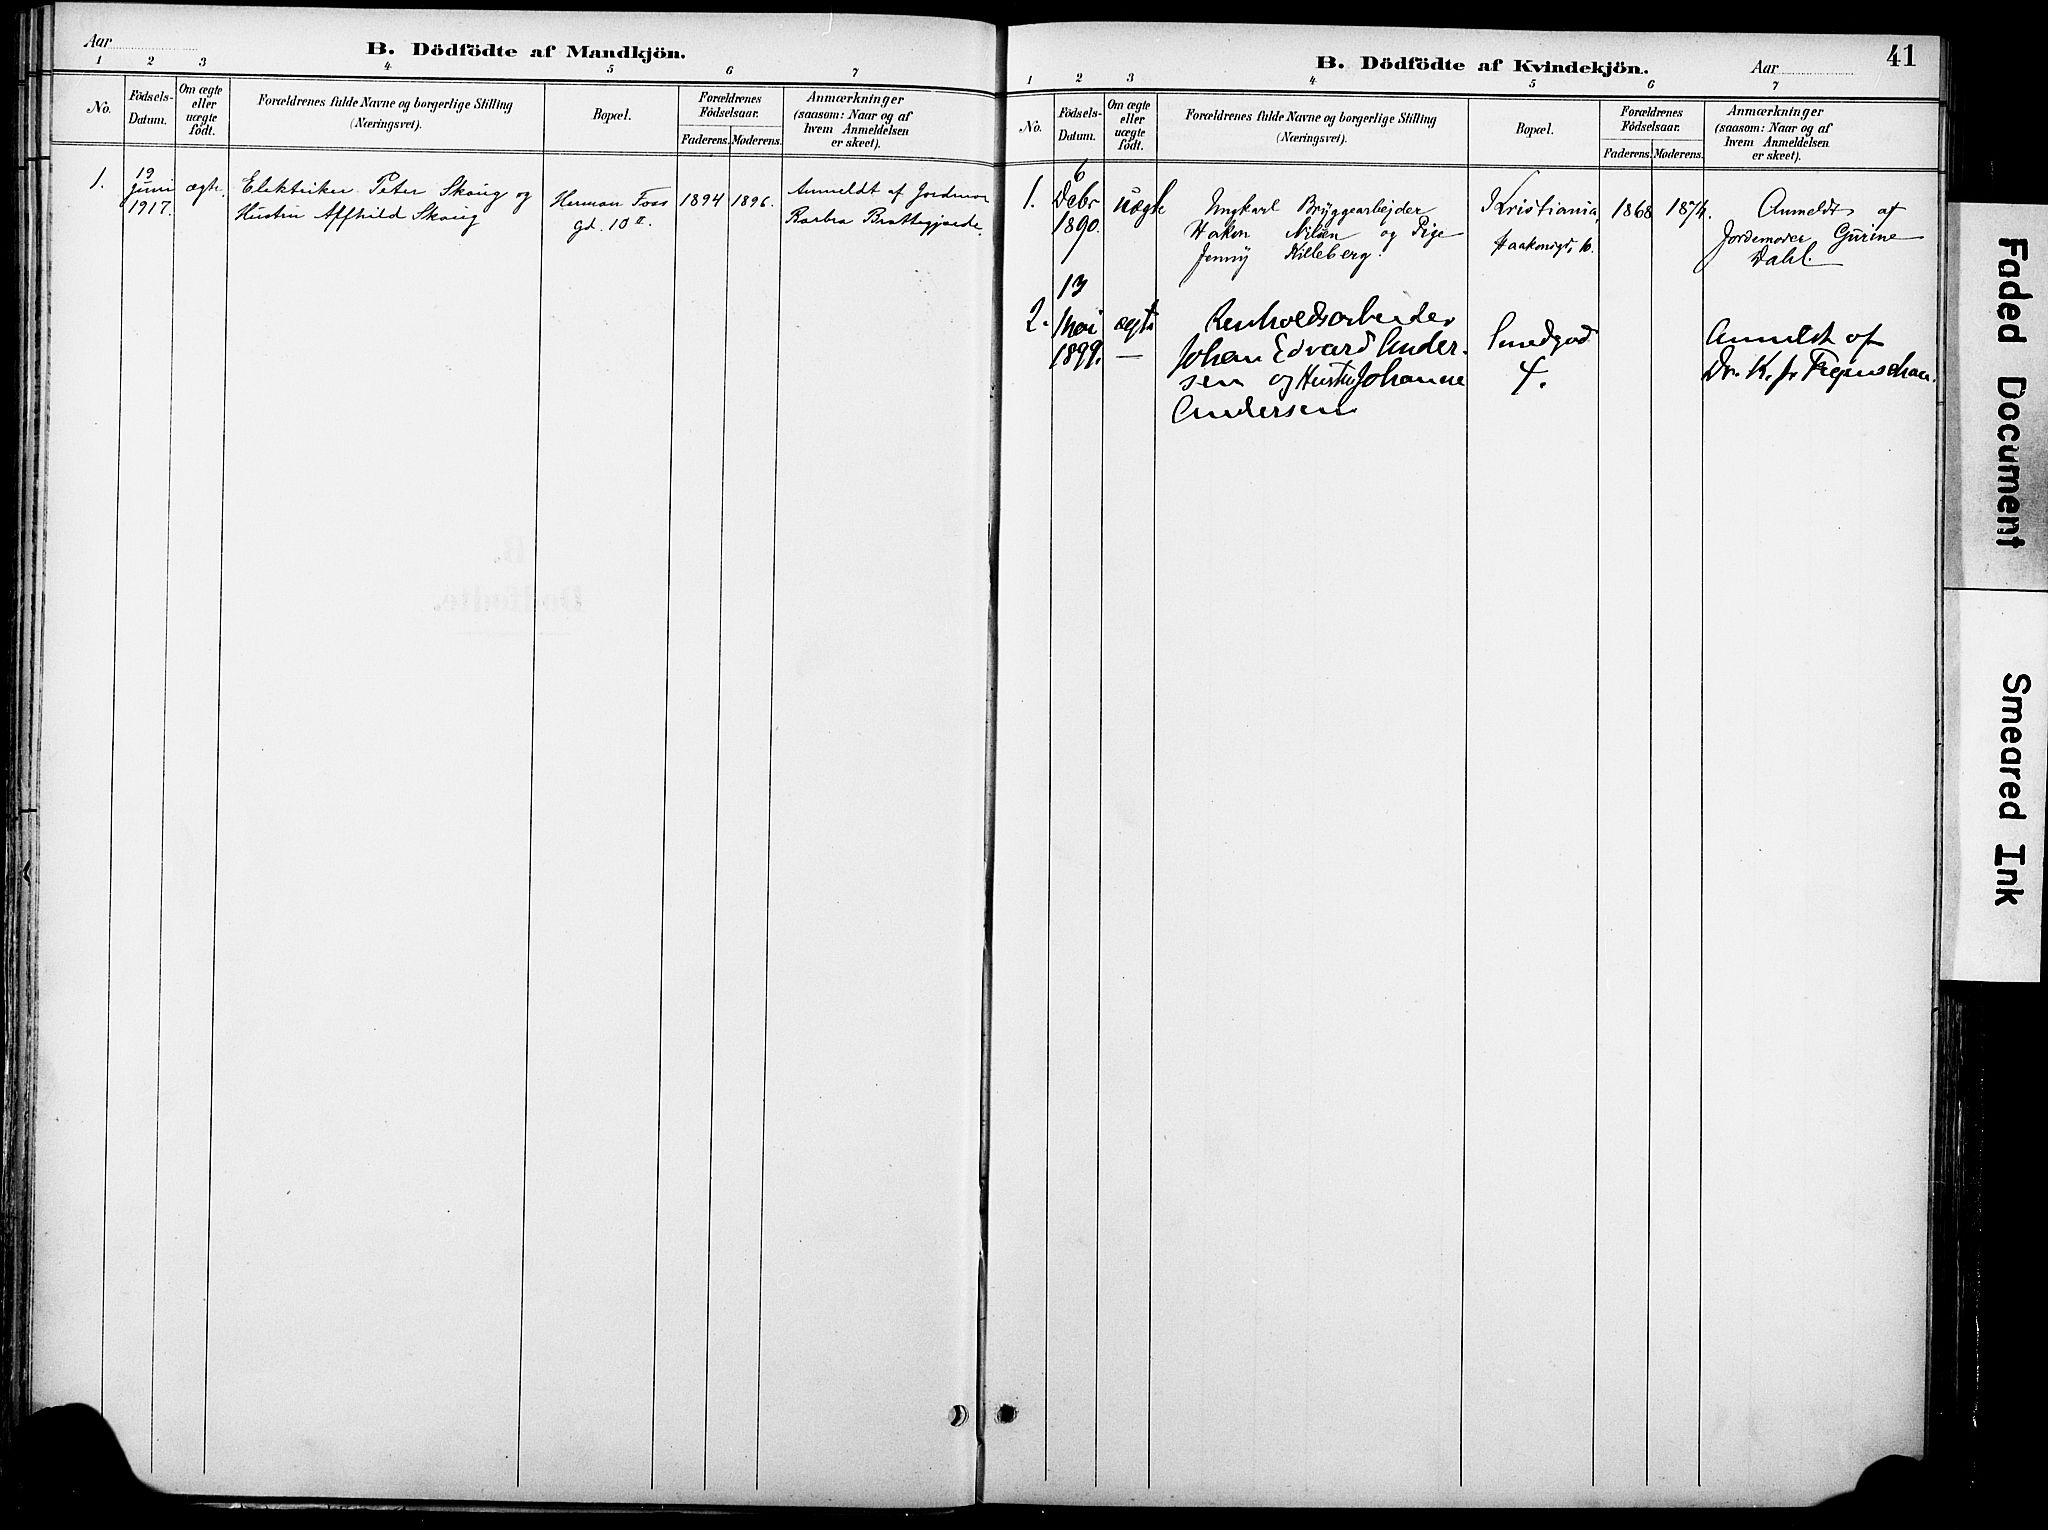 Aar
B. Dödfödte af Mandkjön.
1 2 3 4 5 6 7
No.
Födsels-
Datum.
Om ægte
eller
uægte
födt.
Forældrenes fulde Navne og borgerlige Stilling
(Næringsvei).
Bopæl.
Forældrenes
Födselsaar.
Faderens. Moderens.
Anmærkninger
(saasom: Naar og af
hvem Anmeldelsen
er skeet).
1.
19
Juni
1917.
ægte.
Elektriker Peter Skoug og
Hustru Skoug
Herman Foss
gd. 10 II.
1894 1896.
Anmeldt af Jordmor
Barbra Brattegjerde.
B.
Dödfödte.
41
B. Dödfödte af Kvindekjön.
Aar
1 2 3 4 5 6 7
No.
Födsels-
Datum.
Om ægte
eller
uægte
födt.
Forældrenes fulde Navne og borgerlige Stilling
(Næringsvei).
Bopæl.
Forældrenes
Födselsaar.
Faderens. Moderens.
Anmærkninger
(saasom: Naar og af
hvem Anmeldelsen
er skeet).
1.
6
Debr
1890.
uægte
Ungkarl Bryggearbejder
Hakon Nilsen og Pige
Jenny Killeberg.
Kristiania,
Haakonsgd.
1868 1874.
Anmeldt af
Jordemoder Gurine
Dahl.
2.
13
Mai
1899.
ægte
—
Renholdsarbeider
Johan Edvard Ander-
sen og Hustru Johanne
Andersen
Smedgad
4.
Anmeldt af
Dr. K. Fr Figenschau.
Faded Document
Smeared Ink